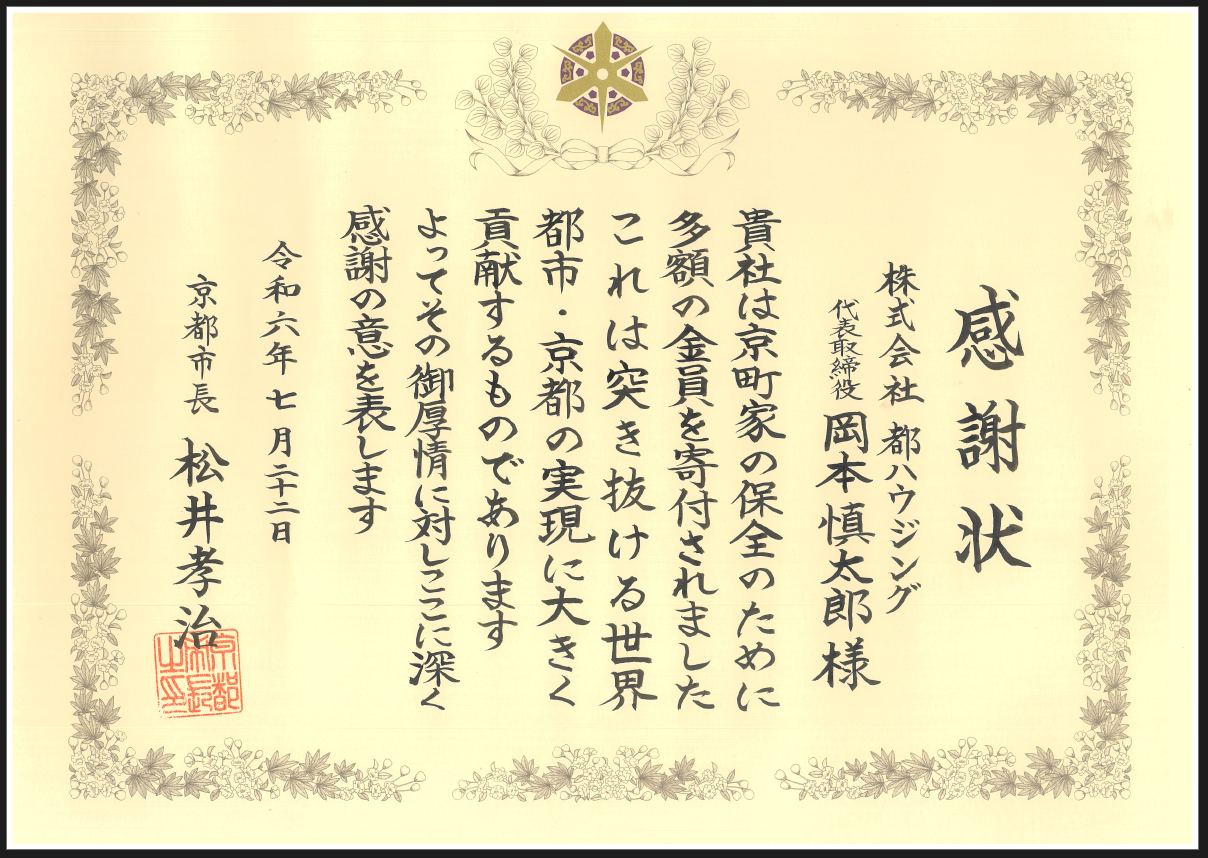 感謝状
株式会社 都ハウジング
代表取締役 岡本慎太郎様
貴社は京町家の保全のために
多額の金員を寄付されました
これは突き抜ける世界
都市・京都の実現に大きく
貢献するものであります
よってその御厚情に対しここに深く
感謝の意を表します
令和六年七月二十二日
京都市長 松井孝治
京都市長之印